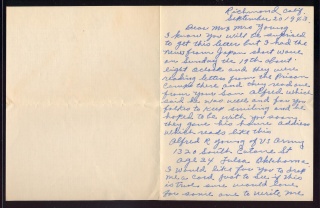 Richmond Calif.
September 20 1943.
Dear Mr & Mrs Young
I know you will be surprised
to get this letter but I had the
news from Japan short wave
on Sunday the 19th about
eight oclock and they were
reading letters from the Prison
Camps there and they read one
from your son Alfred which
said he was well and for you
folks to keep smiling and he
hoped to be with you soon.
they gave his home address
which reads like this
Alfred R Young of US Army
1320 South St
age 24 Tulsa Oklahoma
I would like for you to drop
me a card just to see if this
is true sure would love
for some one to write me